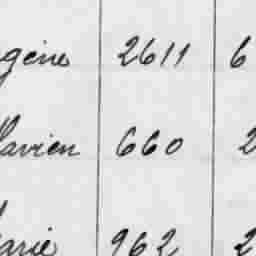 gène 2611 6
lavien 660 2
arie 962 2